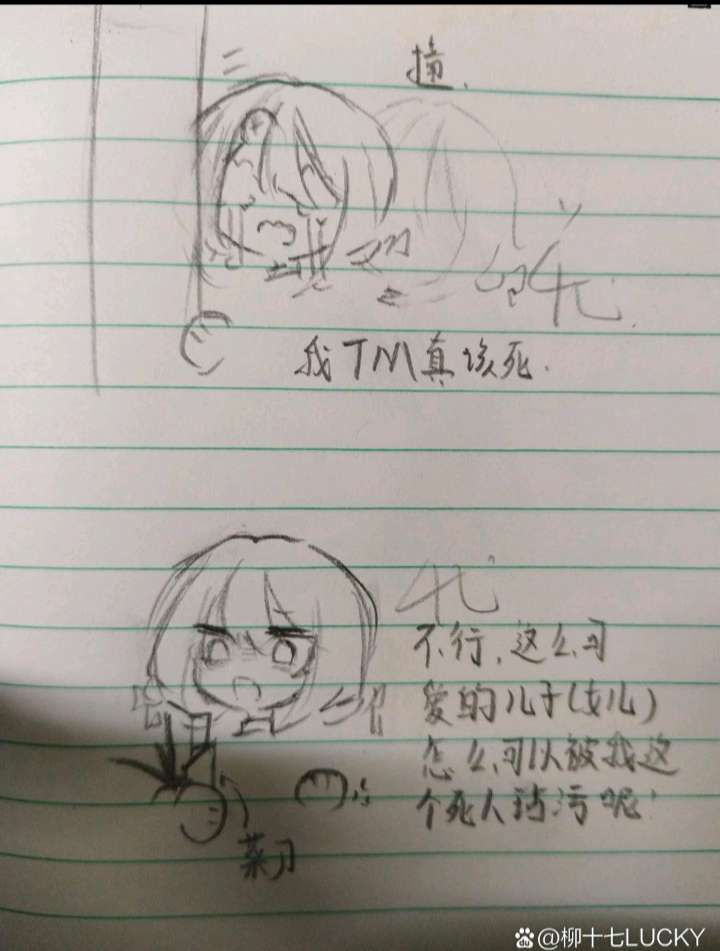 撞.
我TM真该死.
不行,这么可
爱的儿子(女儿)
怎么可以被我这
个死人玷污呢!
菜刀
@柳十七LUCKY